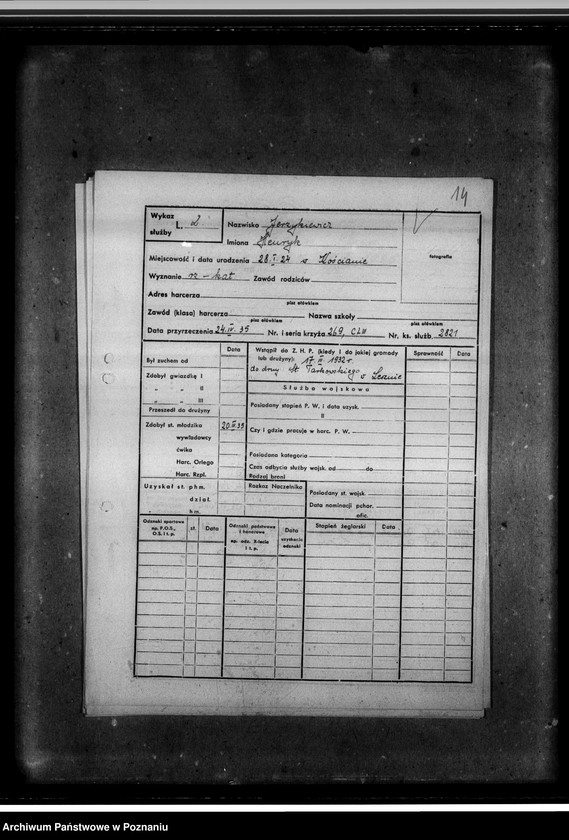 14
Wykaz L. 2
służby
Nazwisko Jerzykiewicz
Imiona Henryk
fotografia
Miejscowość i data urodzenia 28.I.24 w Kościanie
Wyznanie rz-kat Zawód rodziców
Adres harcerza
pisz ołówkiem
Zawód (klasa) harcerza Nazwa szkoły
pisz ołówkiem pisz ołówkiem
Data przyrzeczenia 24.IV.35 Nr. i seria krzyża 269 CLII Nr. ks. służb. 2821
Data
Wstąpił do Z. H. P. (kiedy i do jakiej gromady
lub drużyny) 17 II 1932 r.
do druż. Tarkowskiego w Lesznie
Sprawność Data
Był zuchem od
Zdobył gwiazdkę I
" " II
" " III
Przeszedł do drużyny
Zdobył st. młodzika 20.II.35
wywiadowcy
ćwika
Harc. Orlego
Harc. Rzpl.
Służba wojskowa
Posiadany stopień P. W. i data uzysk.
II
Czy i gdzie pracuje w harc. P. W.
Posiadana kategoria
Czas odbycia służby wojsk. od do
Rodzaj broni
Uzyskał st. phm.
dział.
" h.m.
Rozkaz Naczelnika
Posiadany st. wojsk.
Data nominacji pchor.
ofic.
Odznaki sportowe
np. P.O.S.,
O.S. i t. p.
st.
Data
Odznaki państwowe
i honorowe
np. odz. X-lecia
i t. p.
Data
uzyskania
odznaki
Stopień żeglarski Data
Archiwum Państwowe w Poznaniu